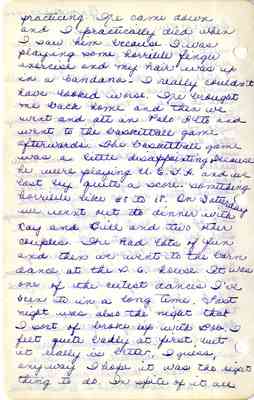 practicing. Ire came down
and I practically died when
I saw him because I was
playing some horrible finger
exercise and my hair was up
in a bandana. I really couldn't
have looked worse. Ire brought
me back home and then we
went and ate in Palo Alto and
went to the basketball game
afterwards. The basketball game
was a little disappointing because
we were playing U.S.F. and we
lost by quite a score. Something
horrible like 65 to 18. On Saturday
we went out to dinner with
Kay and Bill and two other
couples. We had lots of fun
and then we went to the barn
dance at the S.C. house. It was
one of the cutest dances I've
been to in a long time. Last
night was also the night that
I sort of broke up with I
felt quite badly at first, but
it really is better, I guess,
anyway I hope it was the right
thing to do. In spite of it all